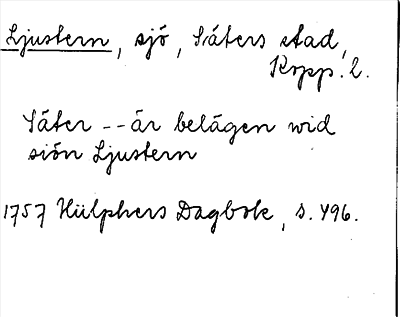 Ljustern, sjö, Säters stad,
Kopp. l.
Säter -- är belägen wid
siön Ljustern
1757 Hülphers Dagbok, s. 496.